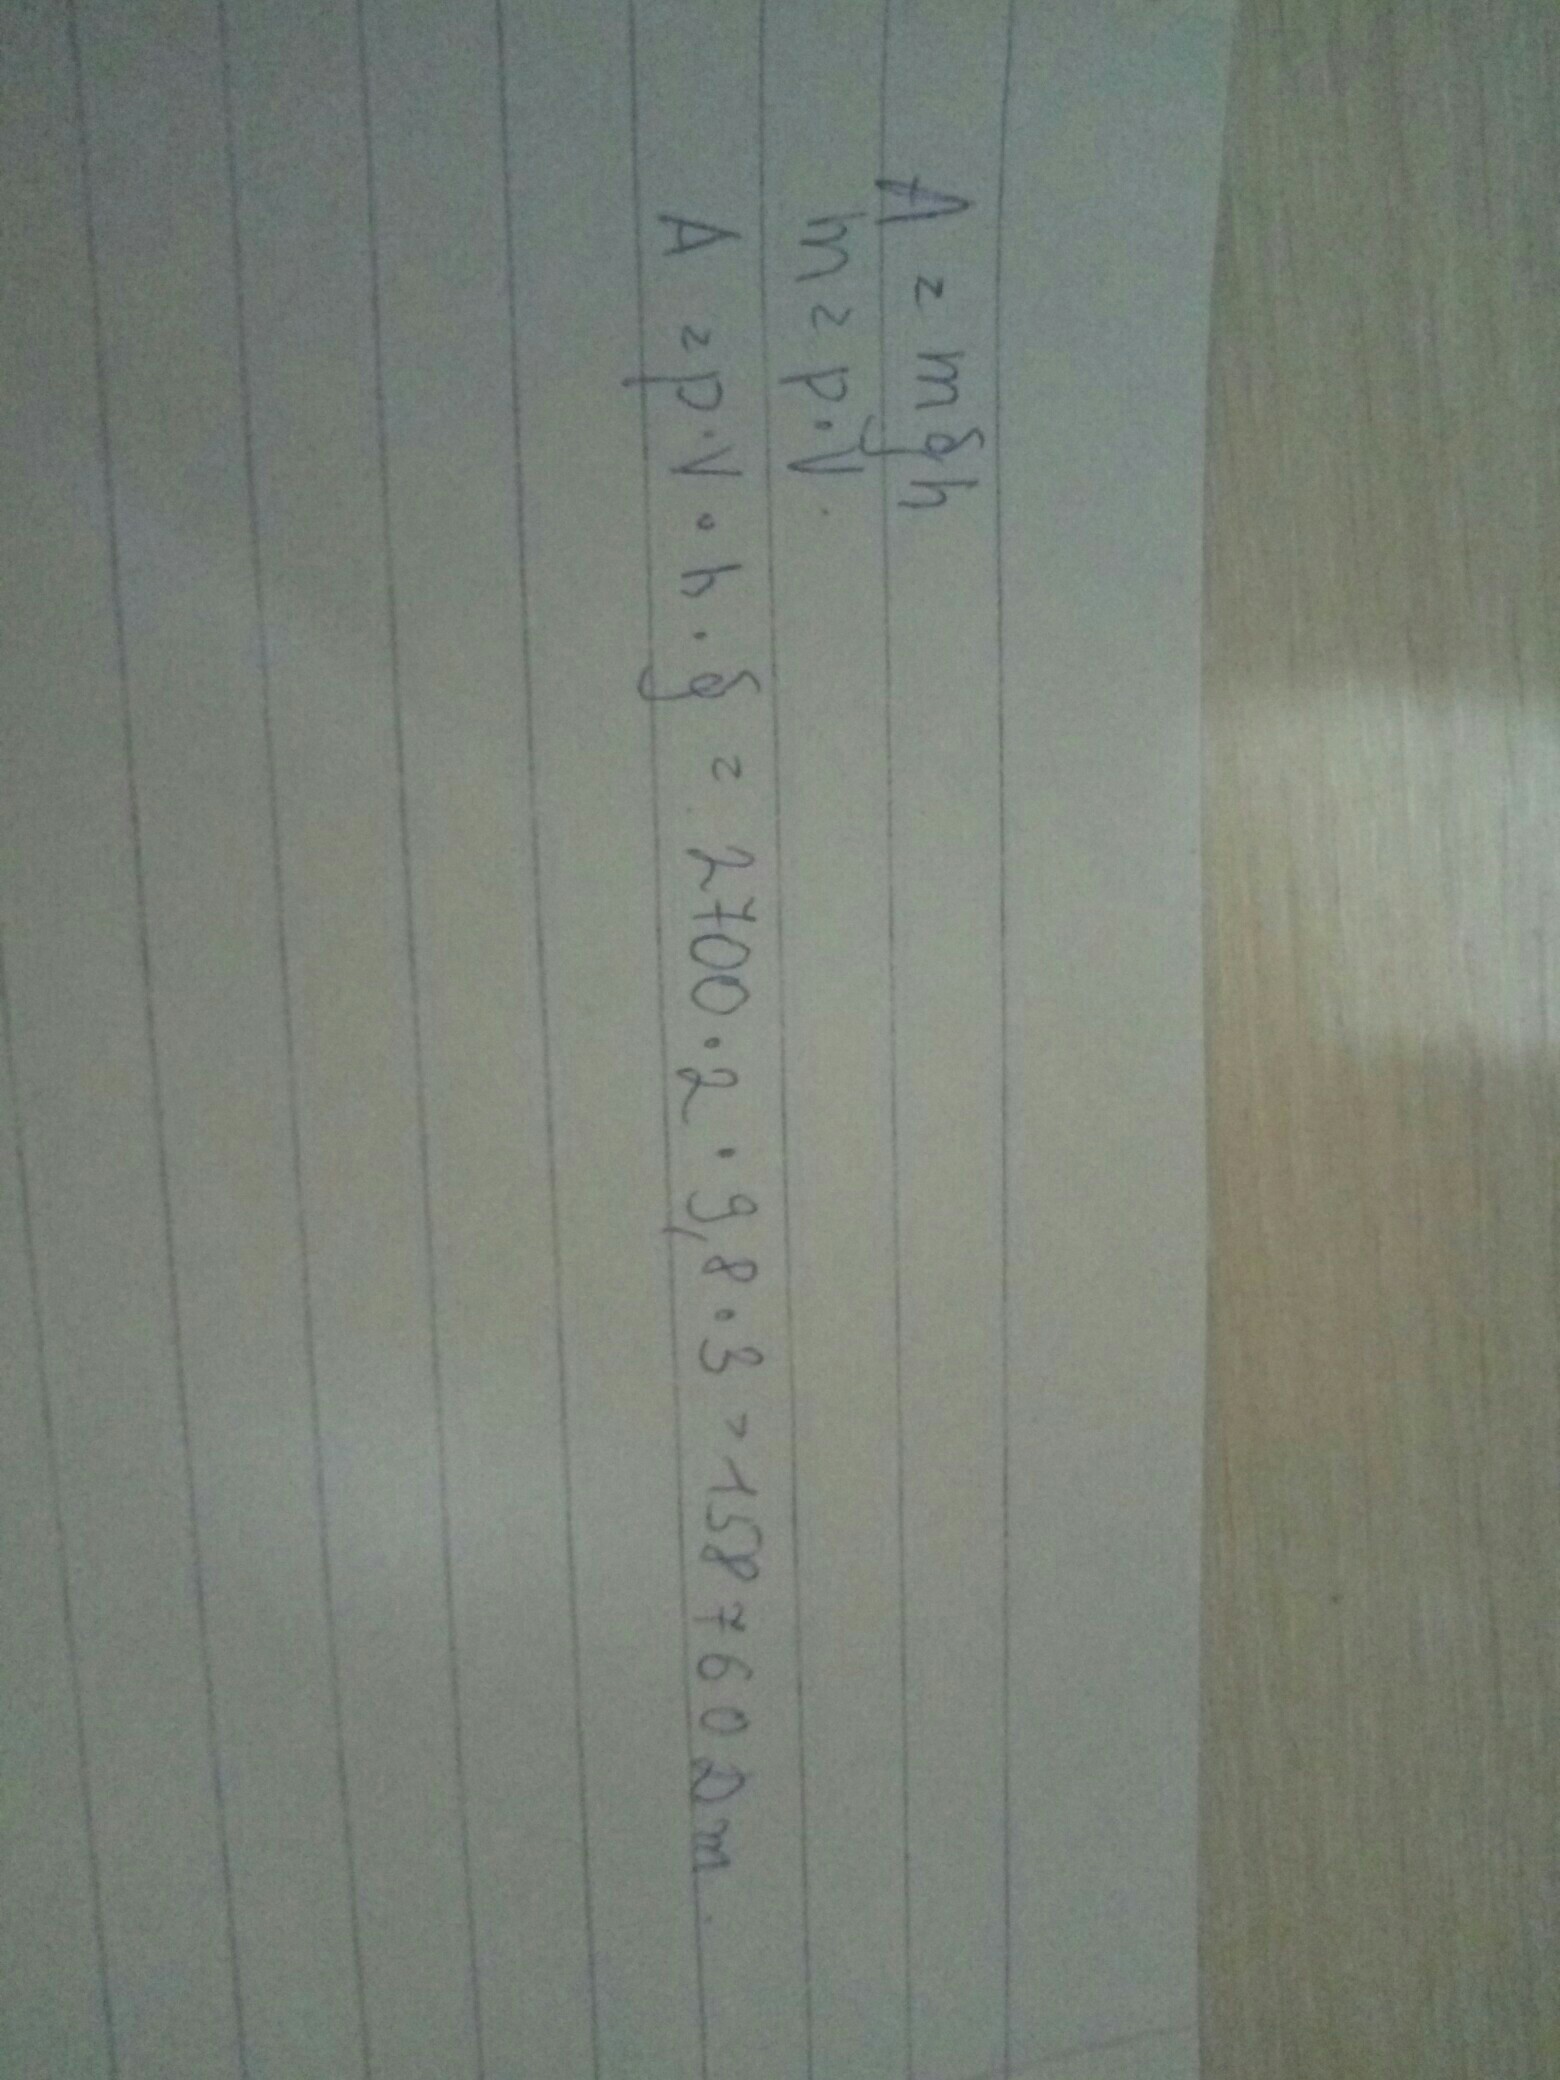 A = mgh
m = p·V.
A = p·V·h·g = 2700·2·9,8·3=158760Dm